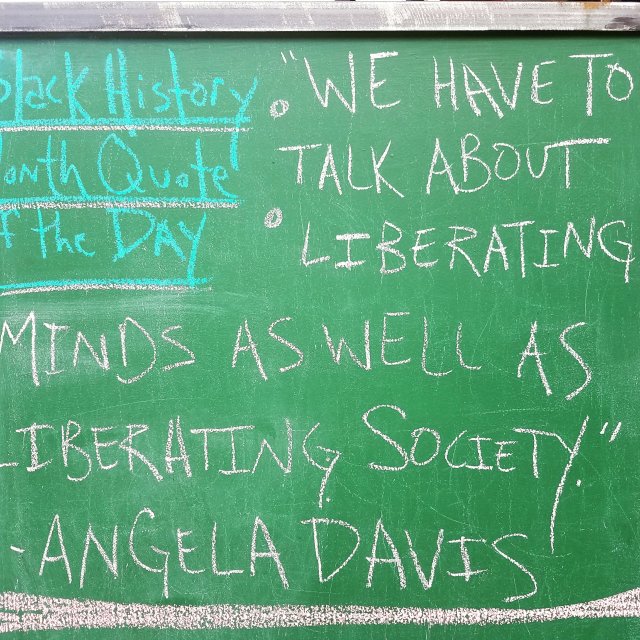 Black History
Month Quote
of the DAY
"WE HAVE TO
TALK ABOUT
LIBERATING
MINDS AS WELL AS
LIBERATING SOCIETY."
-ANGELA DAVIS